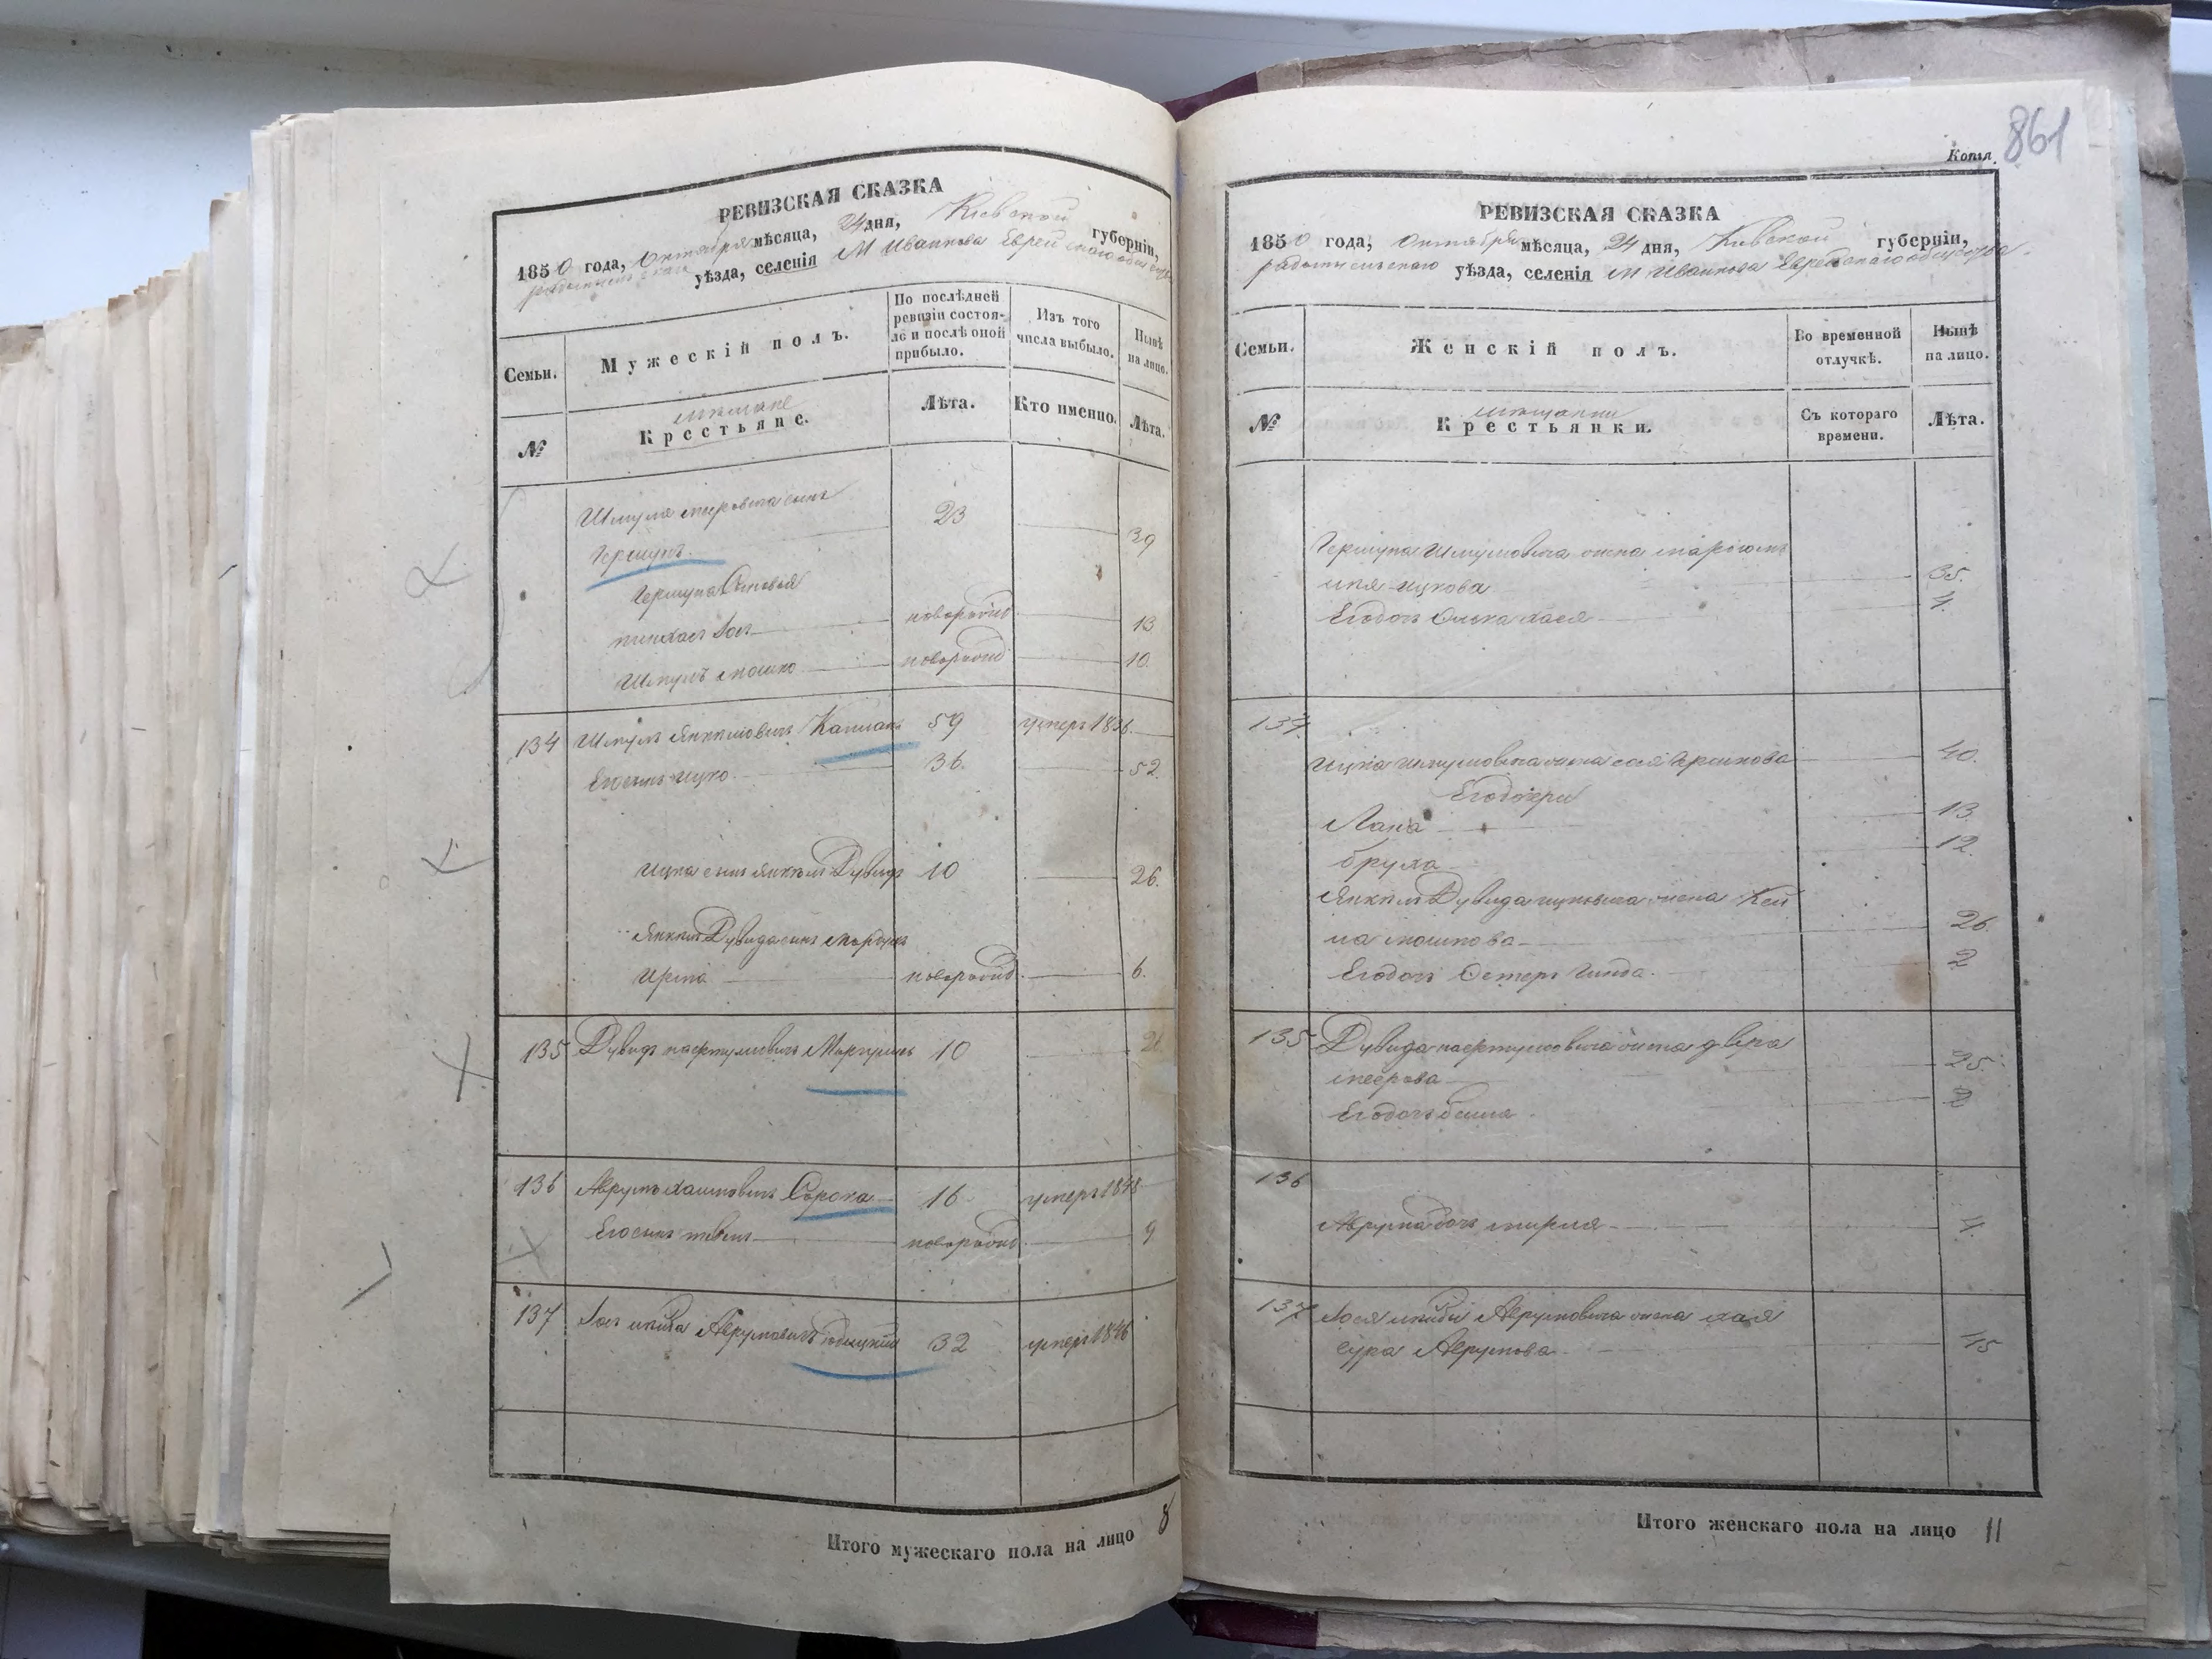 РЕВИЗСКАЯ СКАЗКА
1850 года, Октября мѣсяца, 24 дня, Киевской губернiи,
уѣзда, селенiя М Иванкова Еврейскаго общества
Семьи.
Мужескiй полъ.
По послѣдней ревизiи состоя-ло и послѣ оной прибыло.
Изъ того числа выбыло.
Нынѣ на лицо.
№
мѣщане
Крестьяне.
Лѣта.
Кто именно.
Лѣта.
Шмуля Меровича сынъ 23
Гершунъ. 39
Гершуна Сыновья
Пинхасъ Іосъ новорожд 13
Шмуль Мошко новорожд 10.
134 Шмуль Янкелевичъ Каплан 59 умеръ 1836.
Его сынъ Ицко. 36. 52.
Ицка сынъ Янкель Дувидъ 10 26.
Янкель Дувида сынъ Мордухъ
новорожд. 6.
135 Дувидъ Нафтулевичъ 10
136 Аврумъ Хаимовичъ Сорока 16 умеръ 1848
Его сынъ новорожд. 9
137 Аврумовичъ 32 умеръ 1846
Итого мужескаго пола на лицо 8
861
Копiя.
РЕВИЗСКАЯ СКАЗКА
1850 года, Октября мѣсяца, 24 дня, Киевской губернiи,
радомысльскаго уѣзда, селенiя М Иванкова Еврейскаго общества
Семьи.
Женскiй полъ.
Во временной отлучкѣ.
Нынѣ на лицо.
№
мѣщанки
Крестьянки.
Съ котораго времени.
Лѣта.
Гершуна Шмулевича жена
Ицкова 35.
Его дочь Хася 4.
134.
Ицка Шмулевича жена Гершкова 40.
Его дочери
13.
Бруха 12.
Янкель Дувида Ицковича жена Кей
ла Мошкова 26.
Его дочь Эстеръ Гинда. 2
135 Дувида Нафтулевича жена Двера
Меерова 25.
Его дочь Бейла. 2
136
Аврума дочь Мирля 4.
137 Аврумовича жена Хая
Сура Аврумова 45
Итого женскаго пола на лицо 11